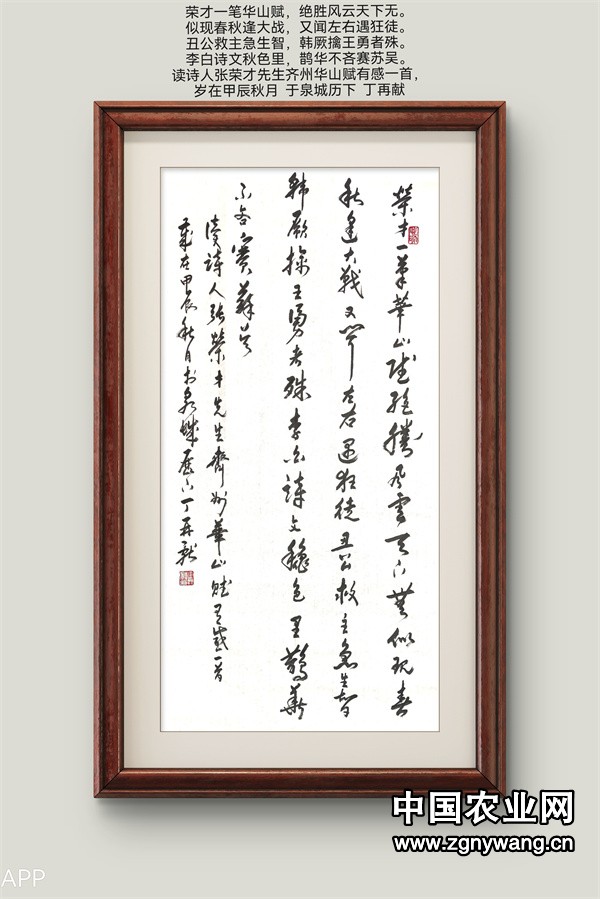 荣才一笔华山赋，绝胜风云天下无。
似现春秋逢大战，又闻左右遇狂徒。
丑公救主急生智，韩厥擒王勇者殊。
李白诗文秋色里，鹊华不吝赛苏吴。
读诗人张荣才先生齐州华山赋有感一首，
岁在甲辰秋月 于泉城历下 丁再献
榮才一筆華山賦絕勝風雲天下無似現春
秋逢大戰又聞左右遇狂徒丑公救主急生智
韩厥擒王勇者殊李白詩文穐色里鵲華
不吝賽蘇吴
读詩人张榮才先生齊州華山赋有感一首
歲在甲辰秋月於泉城歷下丁再献
中国农业网
www.zgnywang.cn
APP